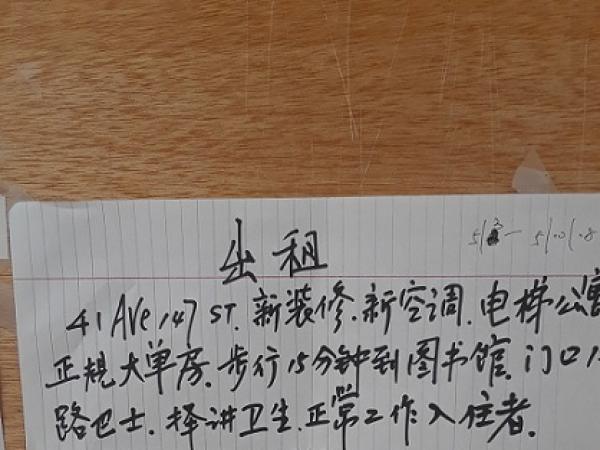 出租
41 Ave 147 ST. 新装修. 新空调. 电梯公寓
正规大单房. 步行15分钟到图书馆. 门口
路巴士. 择讲卫生. 正常工作入住者.